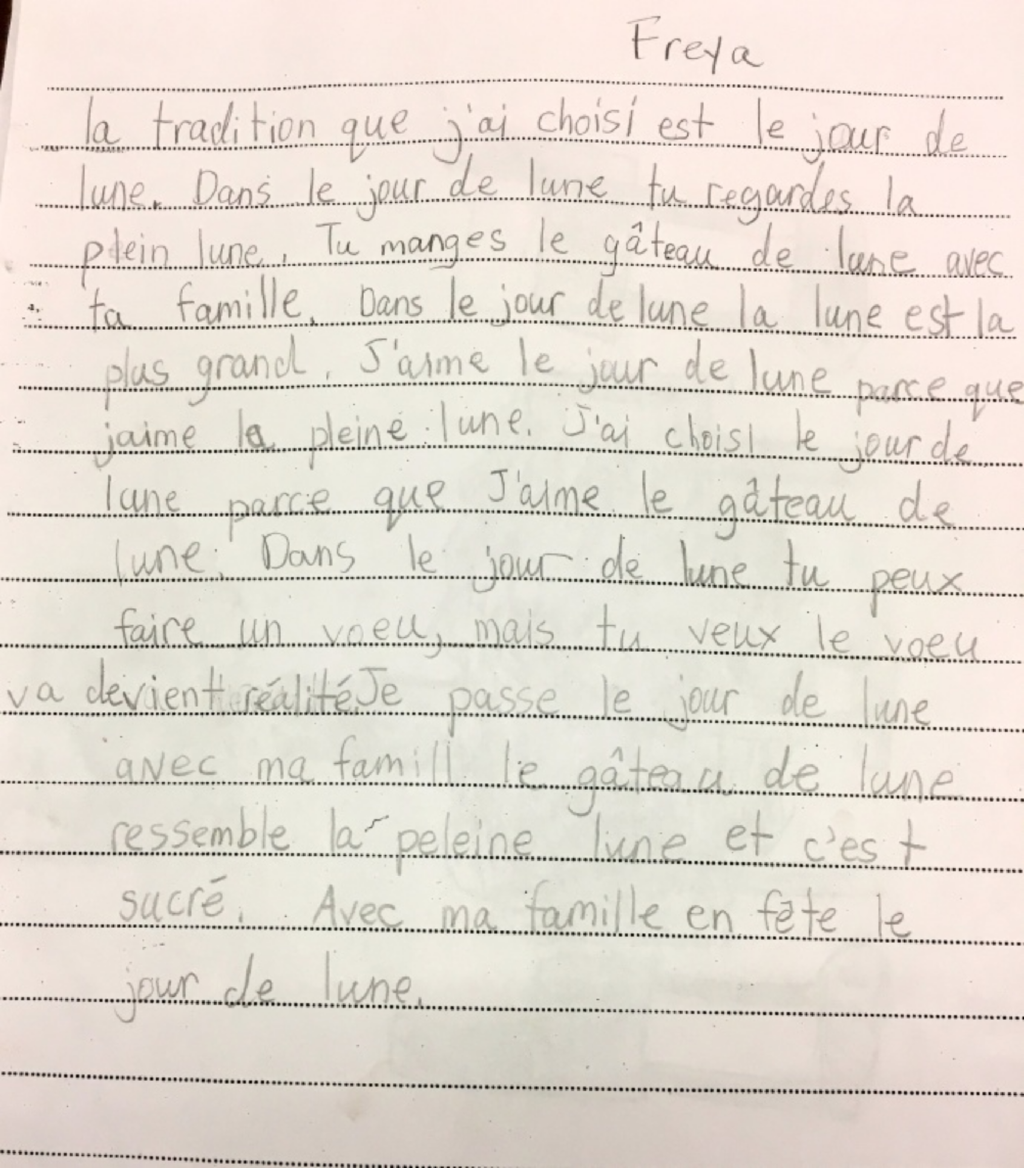 Freya
la tradition que j'ai choisi est le jour de
lune. Dans le jour de lune tu regardes la
plein lune. Tu manges le gâteau de lune avec
ta famille. Dans le jour de lune la lune est la
plus grand. J'aime le jour de lune parce que
jaime la pleine lune. J'ai choisi le jour de
lune parce que J'aime le gâteau de
lune. Dans le jour de lune tu peux
faire un voeu, mais tu veux le voeu
va devient réalité. Je passe le jour de lune
avec ma famill le gâteau de lune
ressemble la peleine lune et c'est
sucré. Avec ma famille en fête le
jour de lune.